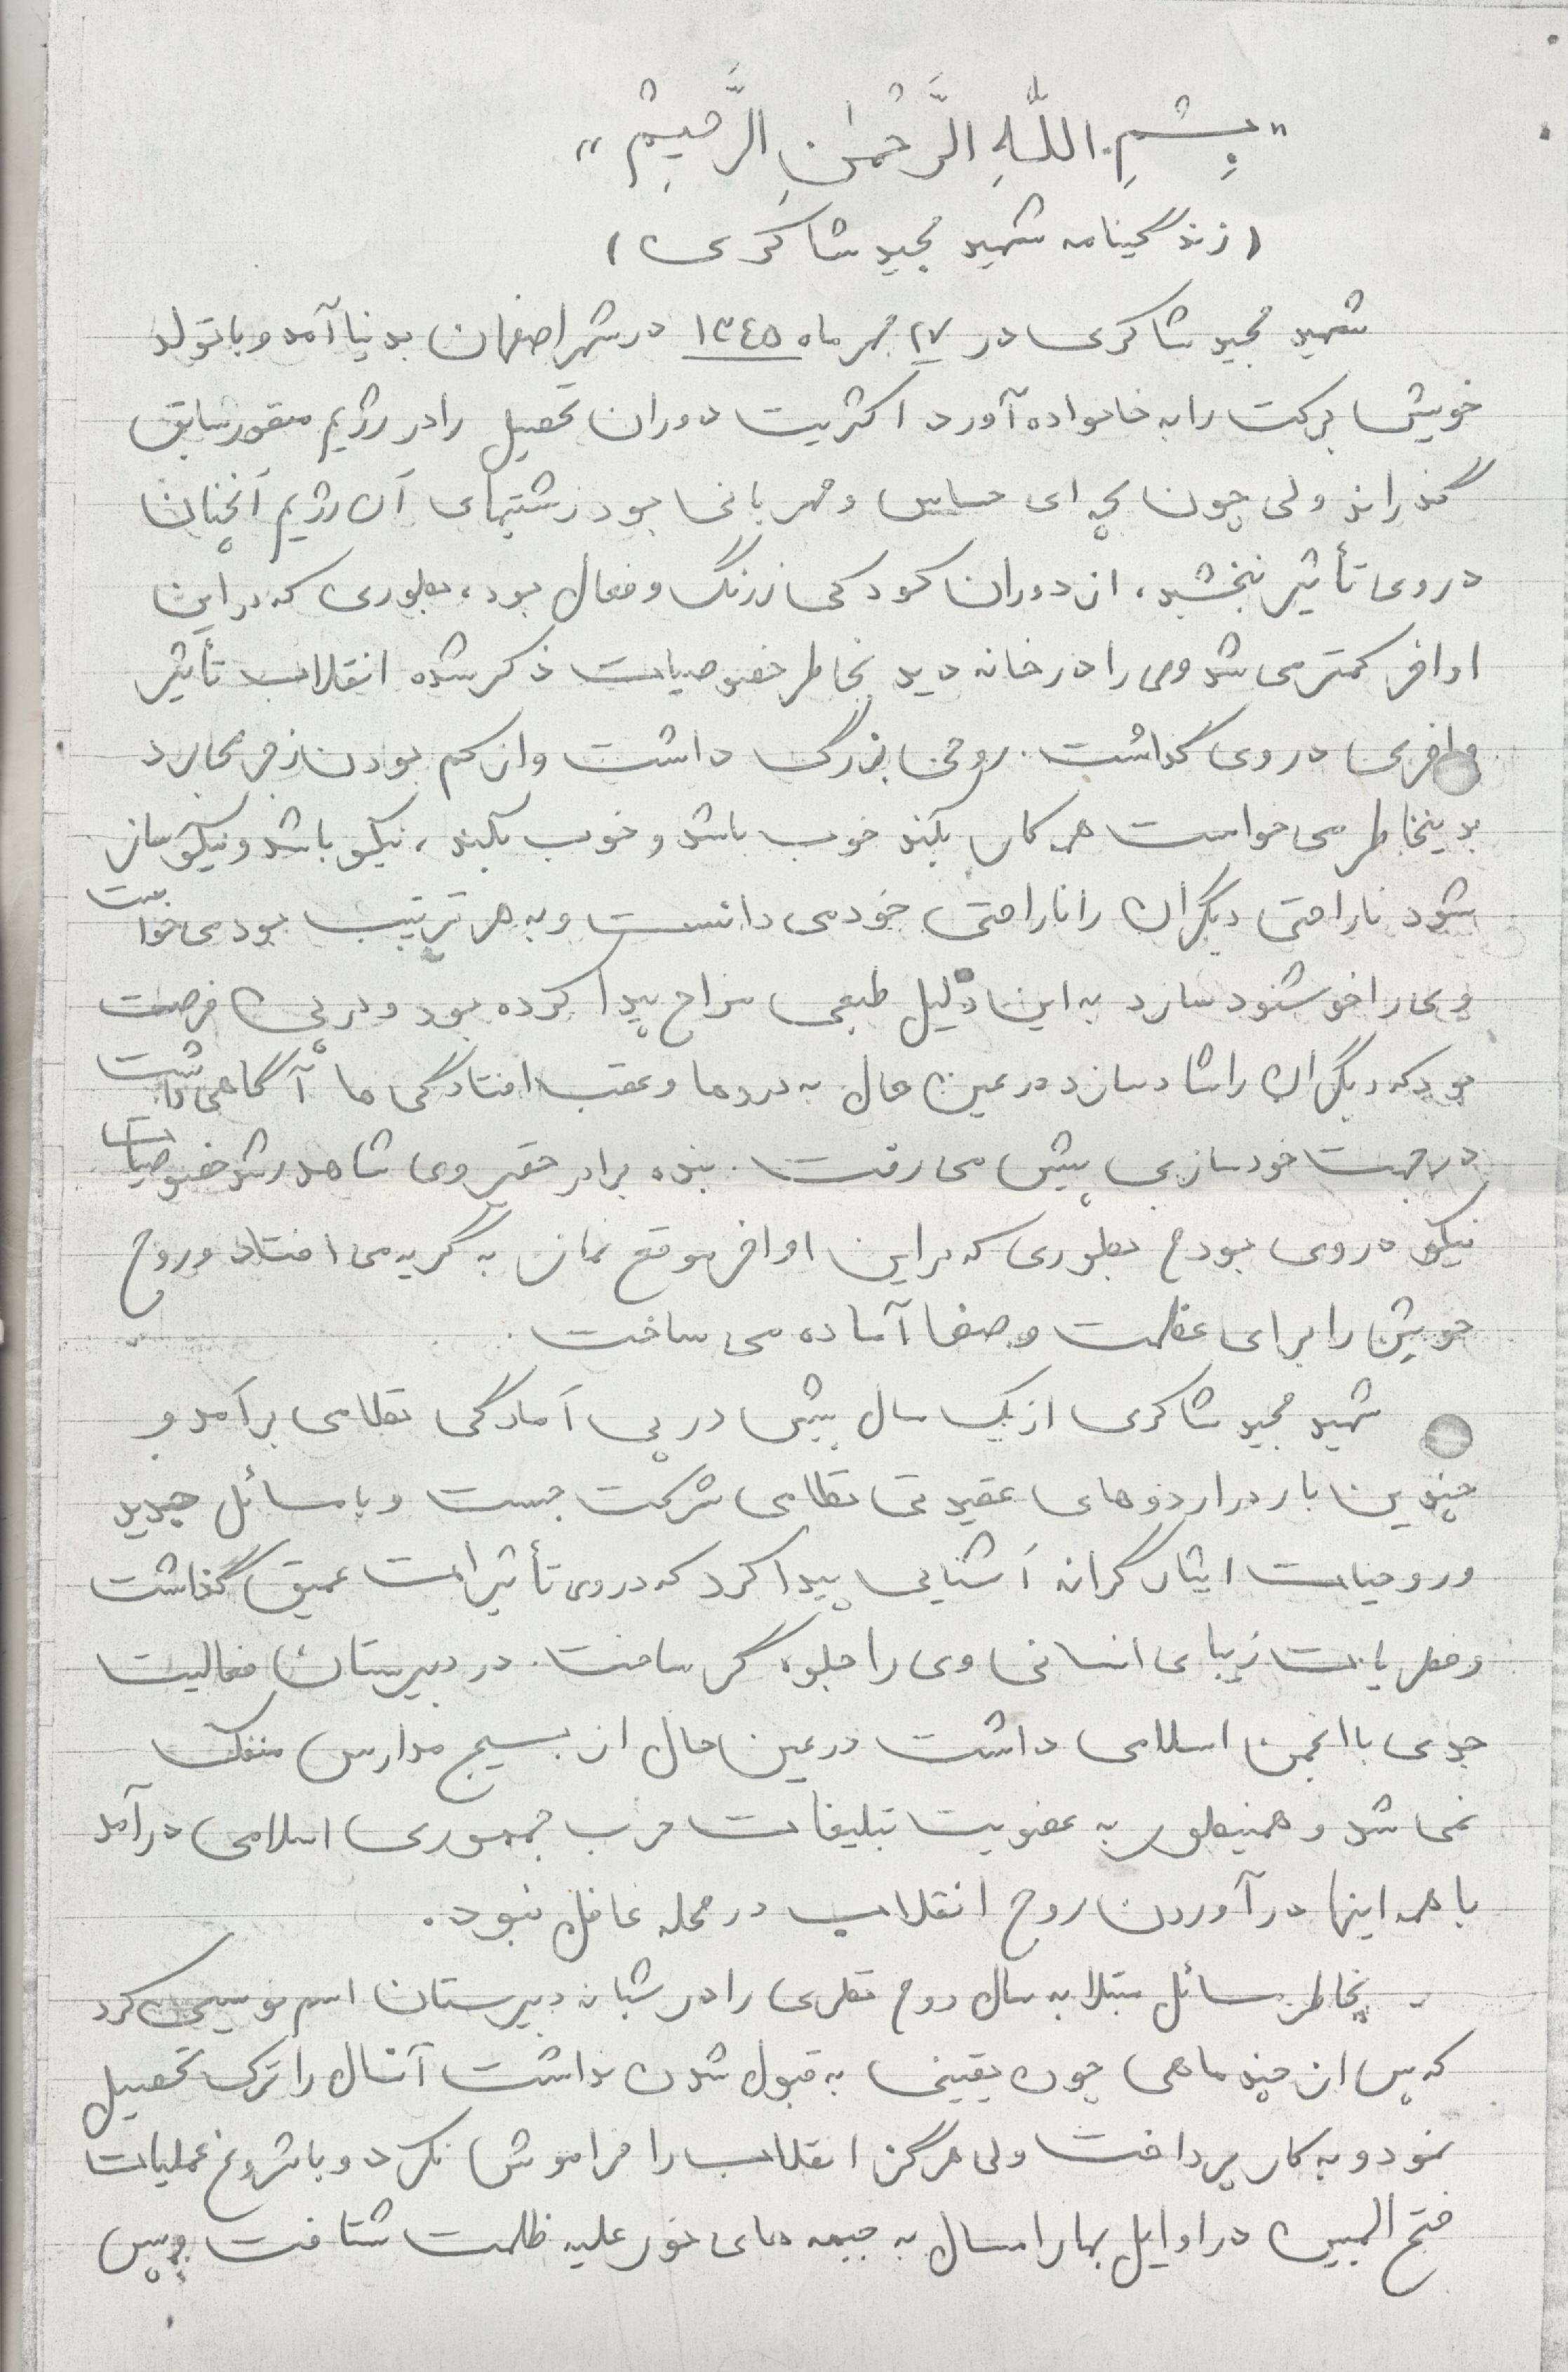 "بِسْمِ اللّهِ الرَّحْمنِ الرَّحیمْ"
(زندگینامه شهید مجید شاکری)
شهید مجید شاکری در ۲۷ مهر ماه ۱۳٤۵ در شهر اصفهان بدنیا آمد و با تولد
خویش برکت را به خانواده آورد اکثریت دوران تحصیل را در رژیم منفور سابق
گذراند ولی چون بچه ای حساس و مهربانی بود زشتیهای آن رژیم آنچنان
در وی تأثیر نبخشید، از دوران کودکی زرنگ و فعال بود، بطوری که در این
اواخر کمتر می شد وی را در خانه دید بخاطر خصوصیات ذکر شده انقلاب تأثیر
وافری در وی گذاشت. روحی بزرگ داشت و از کم بودن زجر می برد
بدینخاطر می خواست هر کار بکند خوب باشد و خوب بکند، نیکو باشد و نیکو ساز
شود ناراحتی دیگران را ناراحتی خود می دانست و به هر ترتیب بود می خواست
وی را خوشنود سازد به این دلیل طبعی مزاح پیدا کرده بود و در پی فرصت
بود که دیگران را شاد سازد در عین حال به دردها و عقب افتادگی ها آگاهی داشت
در جهت خودسازی پیش می رفت. بنده برادر حقیر وی شاهد رشد خصوصیات
نیکو در وی بودم بطوری که در این اواخر موقع نماز به گریه می افتاد و روح
خویش را برای عظمت و صفا آماده می ساخت.
شهید مجید شاکری از یک سال پیش در پی آمادگی نظامی برآمد و
چندین بار در اردوهای عقیدتی نظامی شرکت جست و با مسائل جدید
و روحیات ایثارگرانه آشنایی پیدا کرد که در وی تأثیرات عمیق گذاشت
و فطریات زیبای انسانی وی را جلوه گر ساخت. در دبیرستان فعالیت
جدی با انجمن اسلامی داشت در عین حال از بسیج مدارس منفک
نمی شد و همینطور به عضویت تبلیغات حزب جمهوری اسلامی درآمد
با همه اینها در آوردن روح انقلاب در محله غافل نبود.
بخاطر مسائل مبتلا به سال دوم نظری را در شبانه دبیرستان اسم نویسی کرد
که پس از چند ماهی چون یقینی به قبول شدن نداشت آنسال را ترک تحصیل
نمود و به کار پرداخت ولی هرگز انقلاب را فراموش نکرد و با شروع عملیات
فتح المبین در اوایل بهار امسال به جبهه های نور علیه ظلمت شتافت و پس